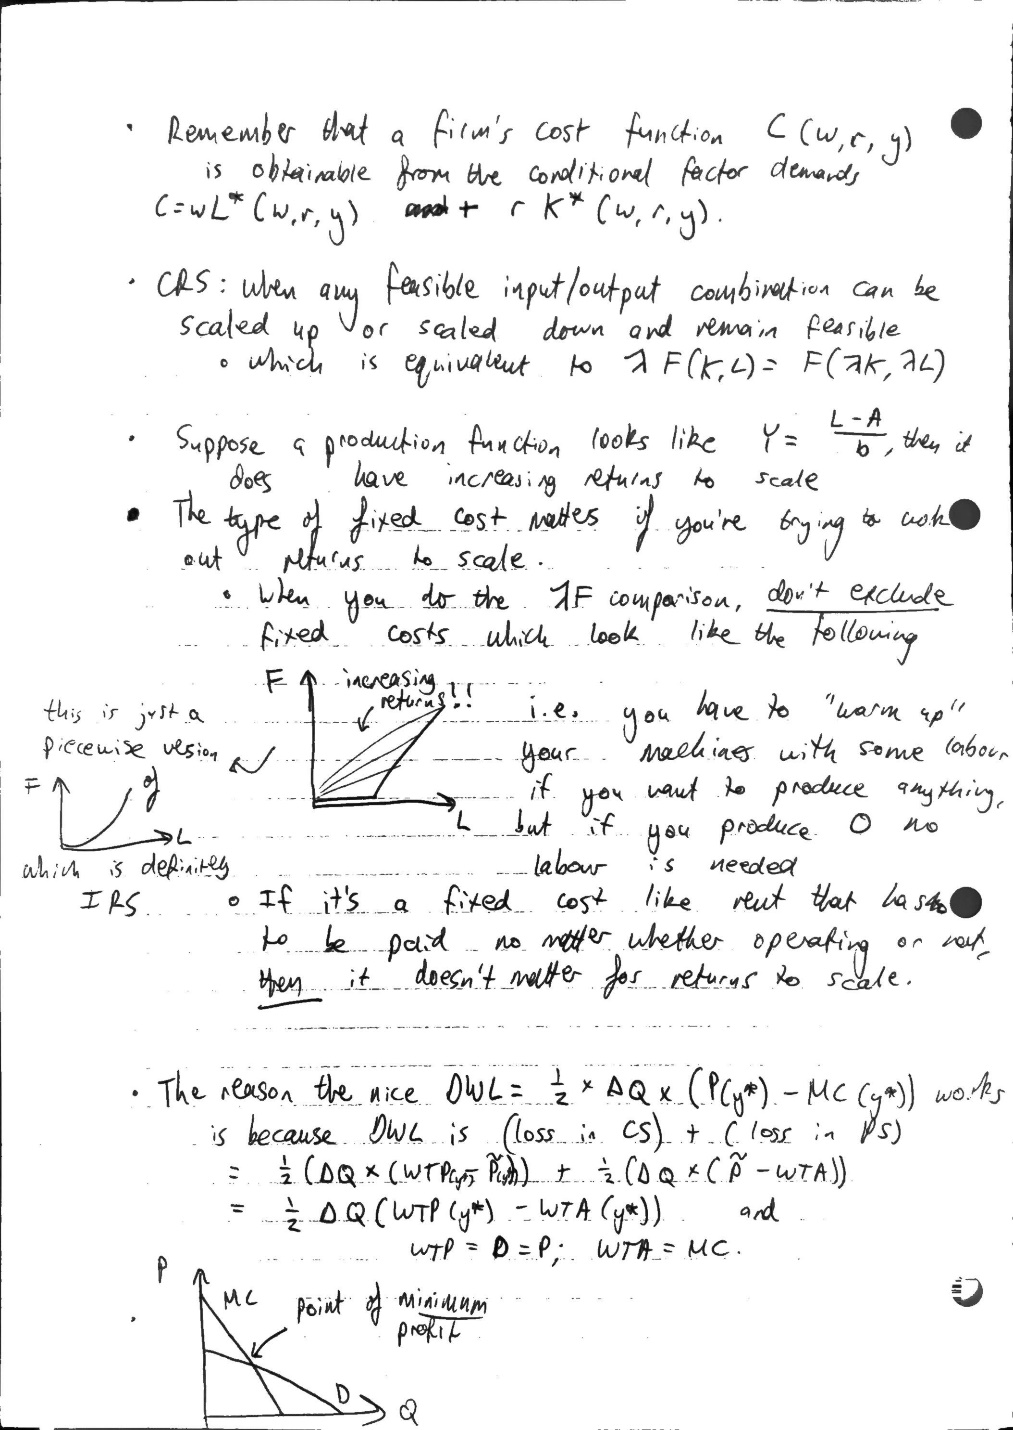 • Remember that a firm's cost function C(w,r,y)
is obtainable from the conditional factor demands
C=wL*(w,r,y) + r K*(w,r,y).
• CRS: when any feasible input/output combination can be
scaled up or scaled down and remain feasible
∘ which is equivalent to λF(K,L) = F(λK,λL)
• Suppose a production function looks like Y = (L-A)/b, then it
does have increasing returns to scale
• The type of fixed cost matters if you're trying to work
out returns to scale.
• When you do the λF comparison, don't exclude
fixed costs which look like the following
F increasing
returns!!
L
this is just a
piecewise version
of
F
L
which is definitely
IRS
i.e. you have to "warm up"
your machines with some labour
if you want to produce anything,
but if you produce 0 no
labour is needed
∘ If it's a fixed cost like rent that has to
to be paid no matter whether operating or not,
then it doesn't matter for returns to scale.
• The reason the nice DWL = 1/2 × ΔQ × (P(y*) - MC(y*)) works
is because DWL is (loss in CS) + (loss in PS)
= 1/2 (ΔQ × (WTP(y*) - P̃)) + 1/2 (ΔQ × (P̃ - WTA))
= 1/2 ΔQ (WTP(y*) - WTA(y*)) and
WTP = D = P; WTA = MC.
P
MC point of minimum
profit
D
Q